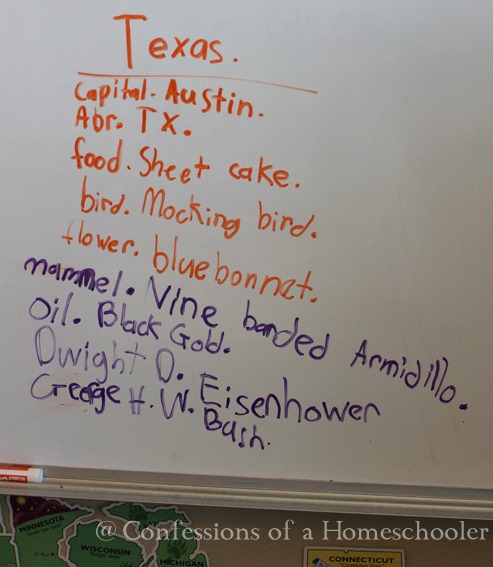 Texas.
Capital. Austin.
Abr. TX.
food. Sheet cake.
bird. Mocking bird.
flower. bluebonnet.
mammel. Nine banded Armidillo.
Oil. Black Gold.
Dwight D. Eisenhower
George H. W. Bush.
@ Confessions of a Homeschooler
MINNESOTA
WISCONSIN
MICHIGAN
CONNECTICUT